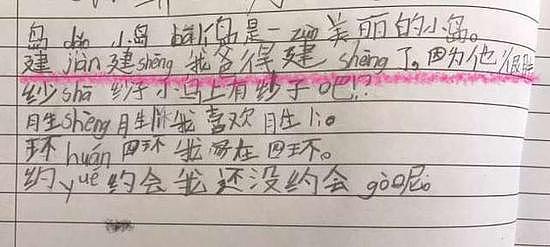 岛 dǎo 小岛 bali岛是一zuo美丽的小岛。
建 jiàn 建shēng 我各得建 shēng 了。因为他很胖
纱 shā 纱子 小岛上有纱子吧!?
胜 shēng 胜li 我喜欢胜li。
环 huán 四环 我家在四环。
约 yuē 约会 我还没约会 gò呢。